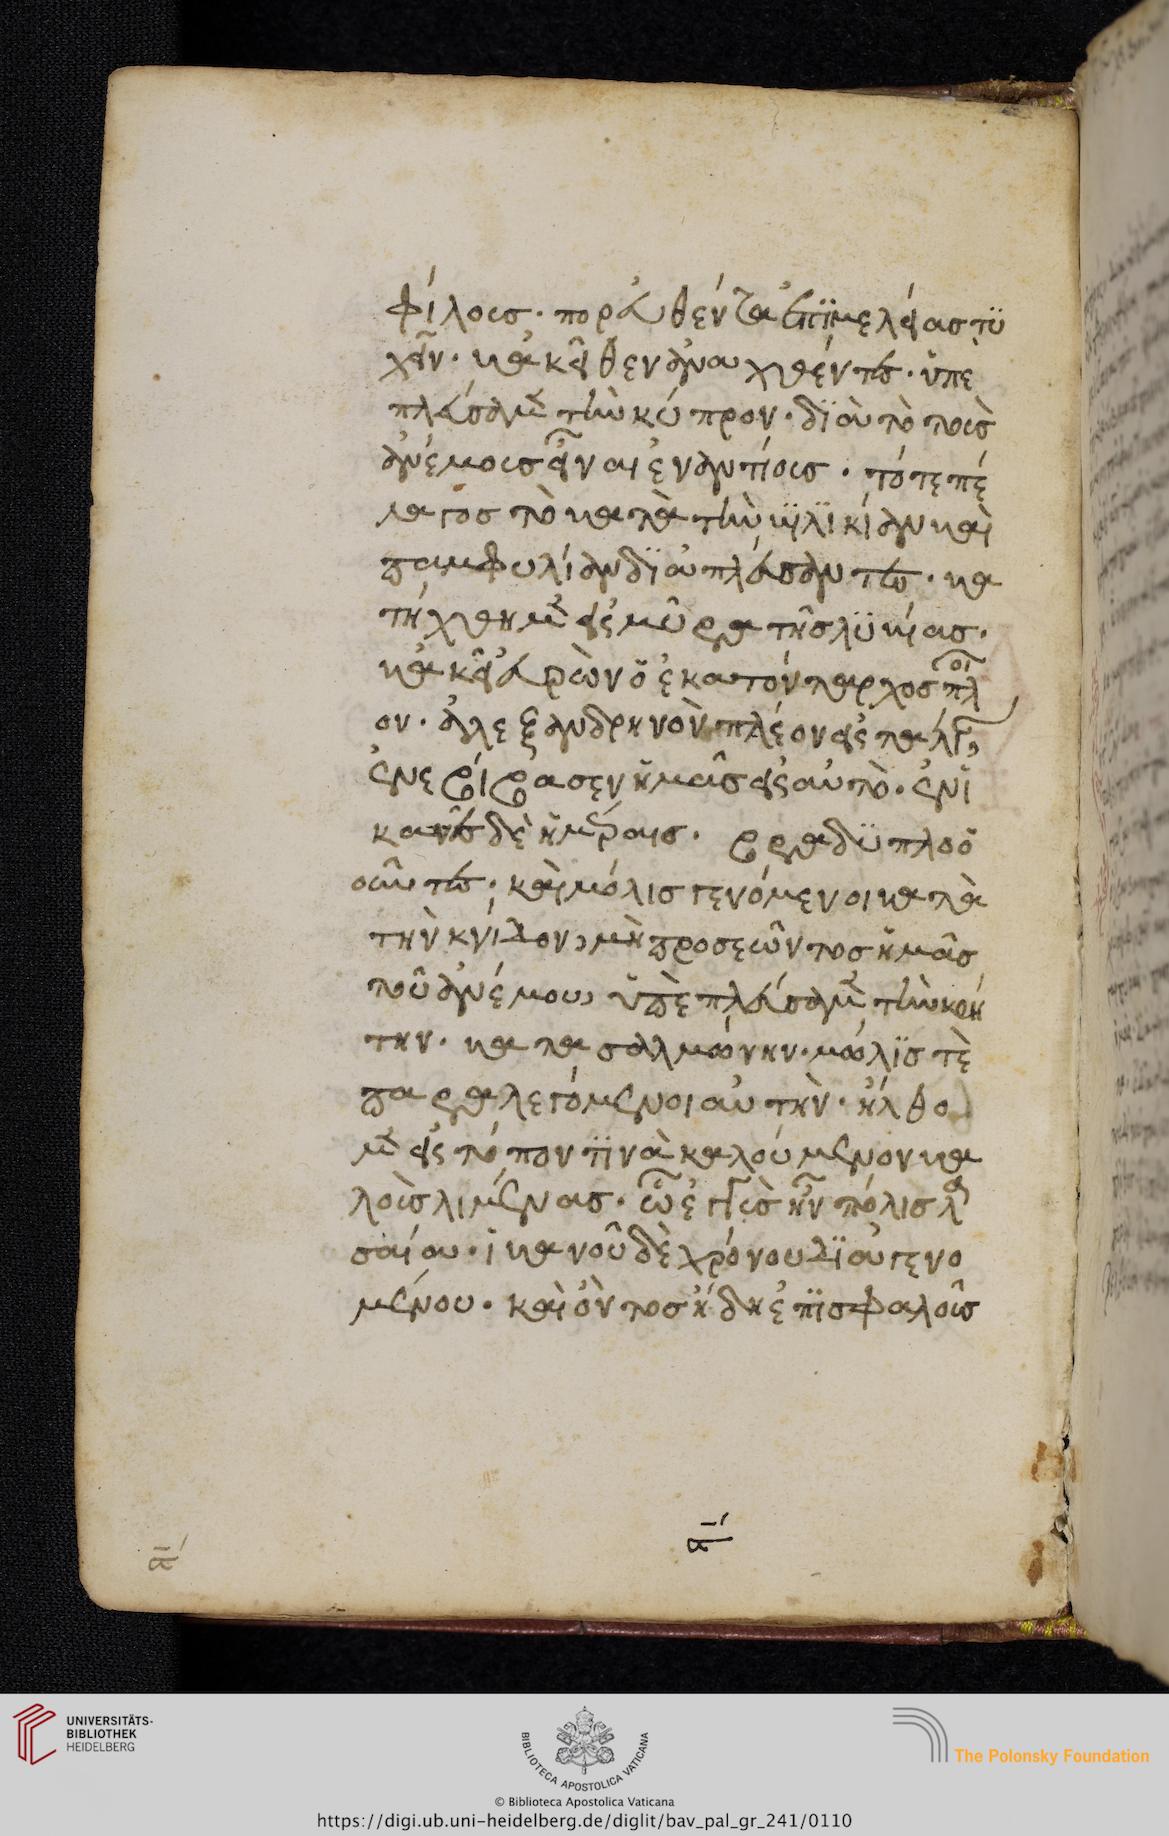 φίλοισ· πορευθέντα ἐπιμελείασ τυ
χεῖν· κἀκεῖθεν ἀναχθέντεσ· ὑπε
πλεύσαμεν τὴν κύπρον· διὰ τὸ τοὺσ
ἀνέμουσ εἶναι ἐναντίουσ· τότε πέ
λαγοσ τὸ κατὰ τὴν κιλικίαν καὶ
παμφυλίαν διαπλεύσαντεσ· κα
τήχθημεν εἰς μύρα τῆσ λυκίασ·
κἀκεῖ εὑρὼν ὁ ἑκατόνταρχοσ πλοῖ
ον· ἀλεξανδρηνὸν πλέον εἰς
ἐνεβίβασεν ἡμᾶσ εἰς αὐτό· ἐν ἱ
καναῖσ δὲ ἡμέραισ· βραδυπλοο
οῦντεσ· καὶ μόλισ γενόμενοι κατὰ
τὴν κνίδον, μὴ προσεῶντοσ ἡμᾶσ
τοῦ ἀνέμου, ὑπεπλεύσαμεν τὴν κρή
την· κατα σαλμώνην· μόλισ τὲ
παραλεγόμενοι αὐτὴν· ἤλθο
μεν εἰς τόπον τινὰ καλούμενον κα
λοὺσ λιμένασ· ὧ ἐγγὺσ ἦν πόλισ λα
σαία· ἱκανοῦ δὲ χρόνου διαγενο
μένου· καὶ ὄντοσ ἤδη ἐπισφαλοῦσ
ια
ια
UNIVERSITÄTS-
BIBLIOTHEK
HEIDELBERG
BIBLIOTECA APOSTOLICA VATICANA
© Biblioteca Apostolica Vaticana
The Polonsky Foundation
https://digi.ub.uni-heidelberg.de/diglit/bav_pal_gr_241/0110